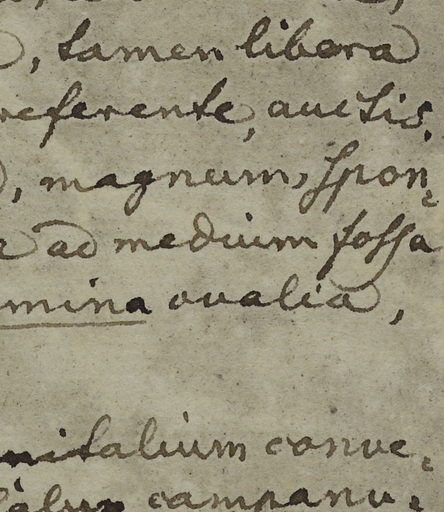 , tamen libera
referente, auctis.
, magnum, spon:
ad medium fossa
mina ovalia,
nitalium conve:
campanu: